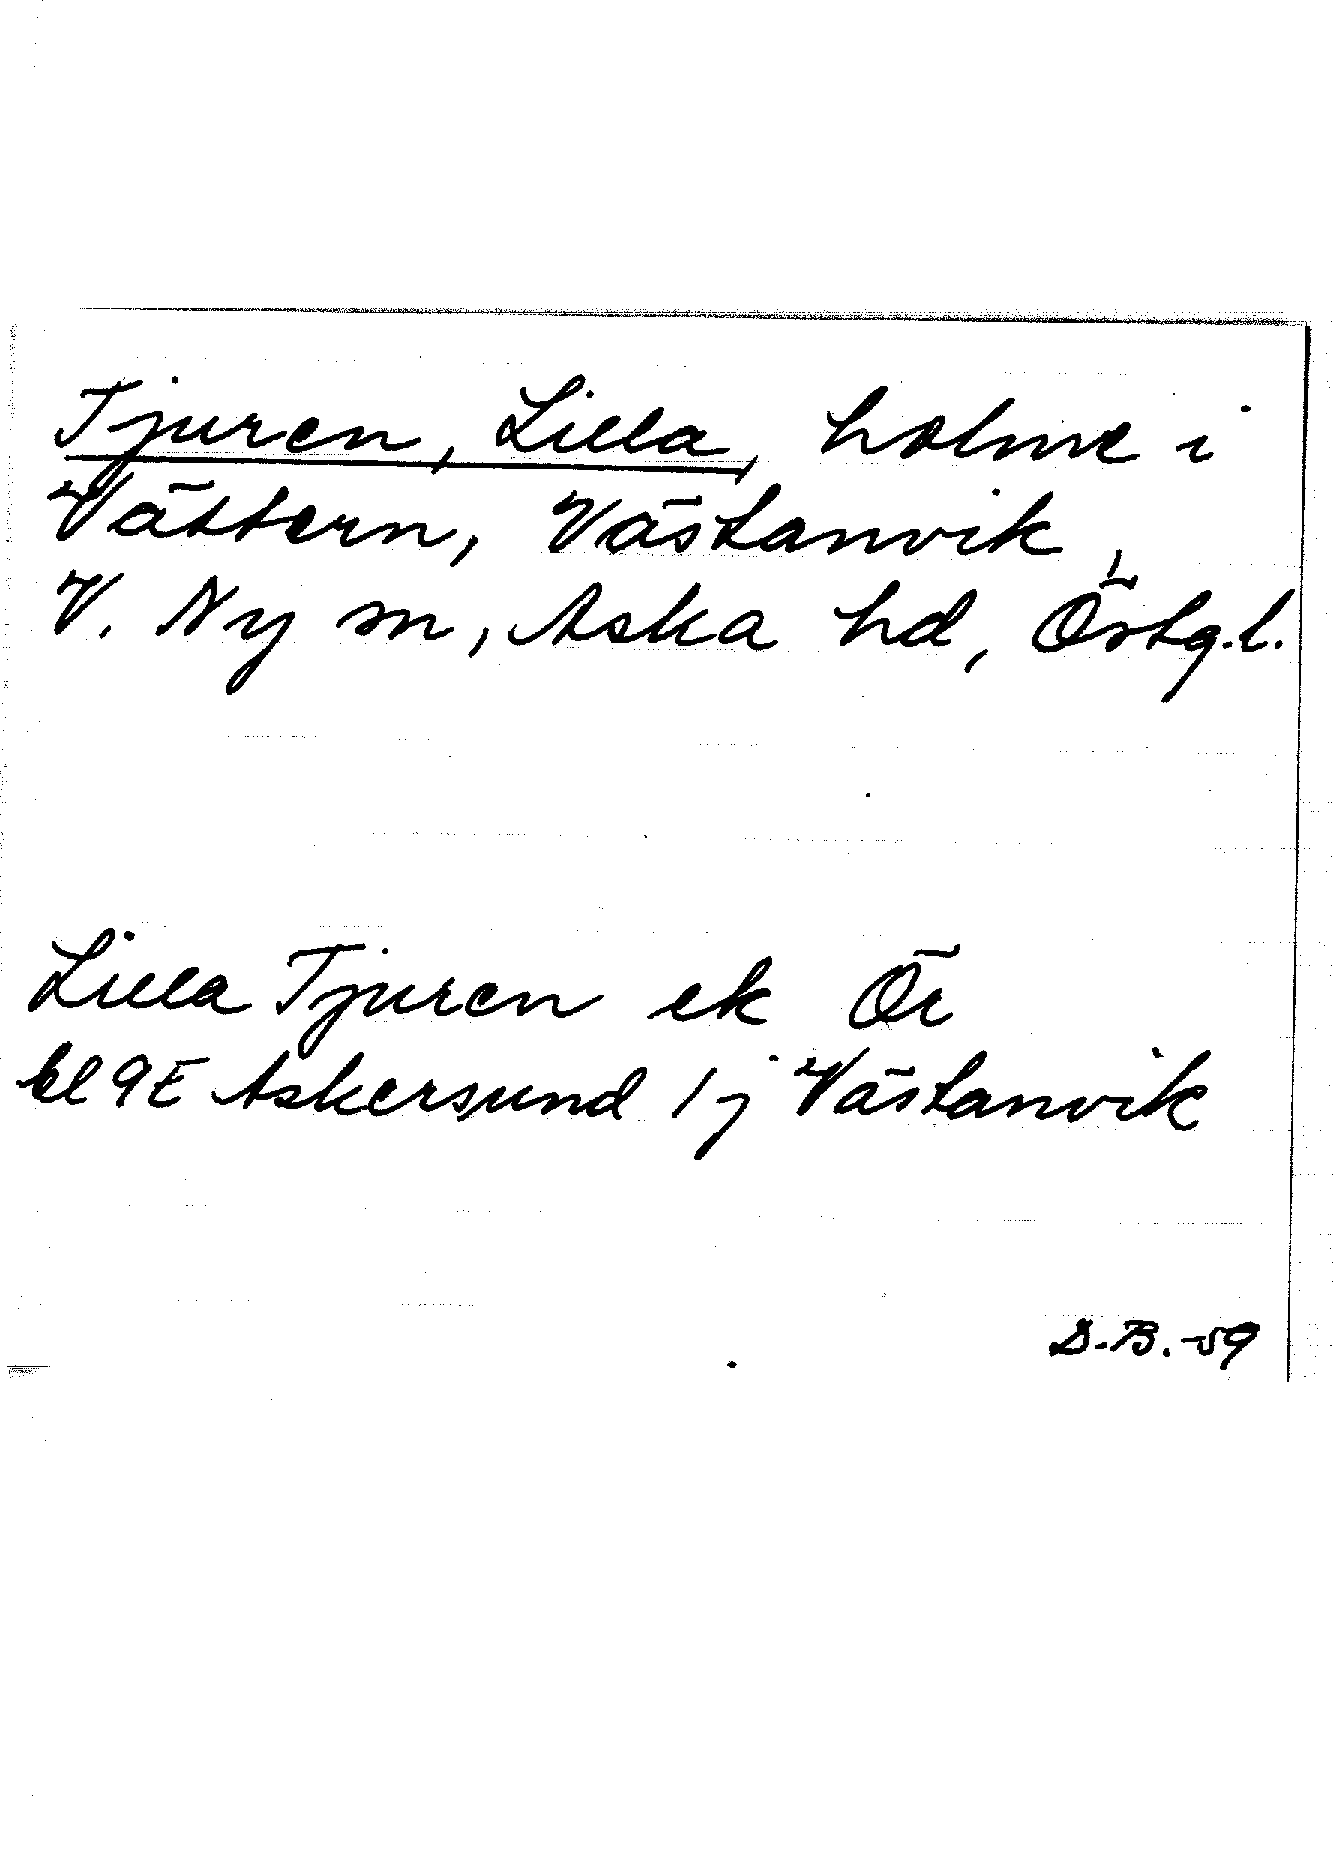 Tjuren, Lilla, holme i
Vättern, Västanvik,
V. Ny sn, Aska hd, Östg.l.
Lilla Tjuren ek Ör
bl 9E Askersund 1j Västanvik
S.B. -59